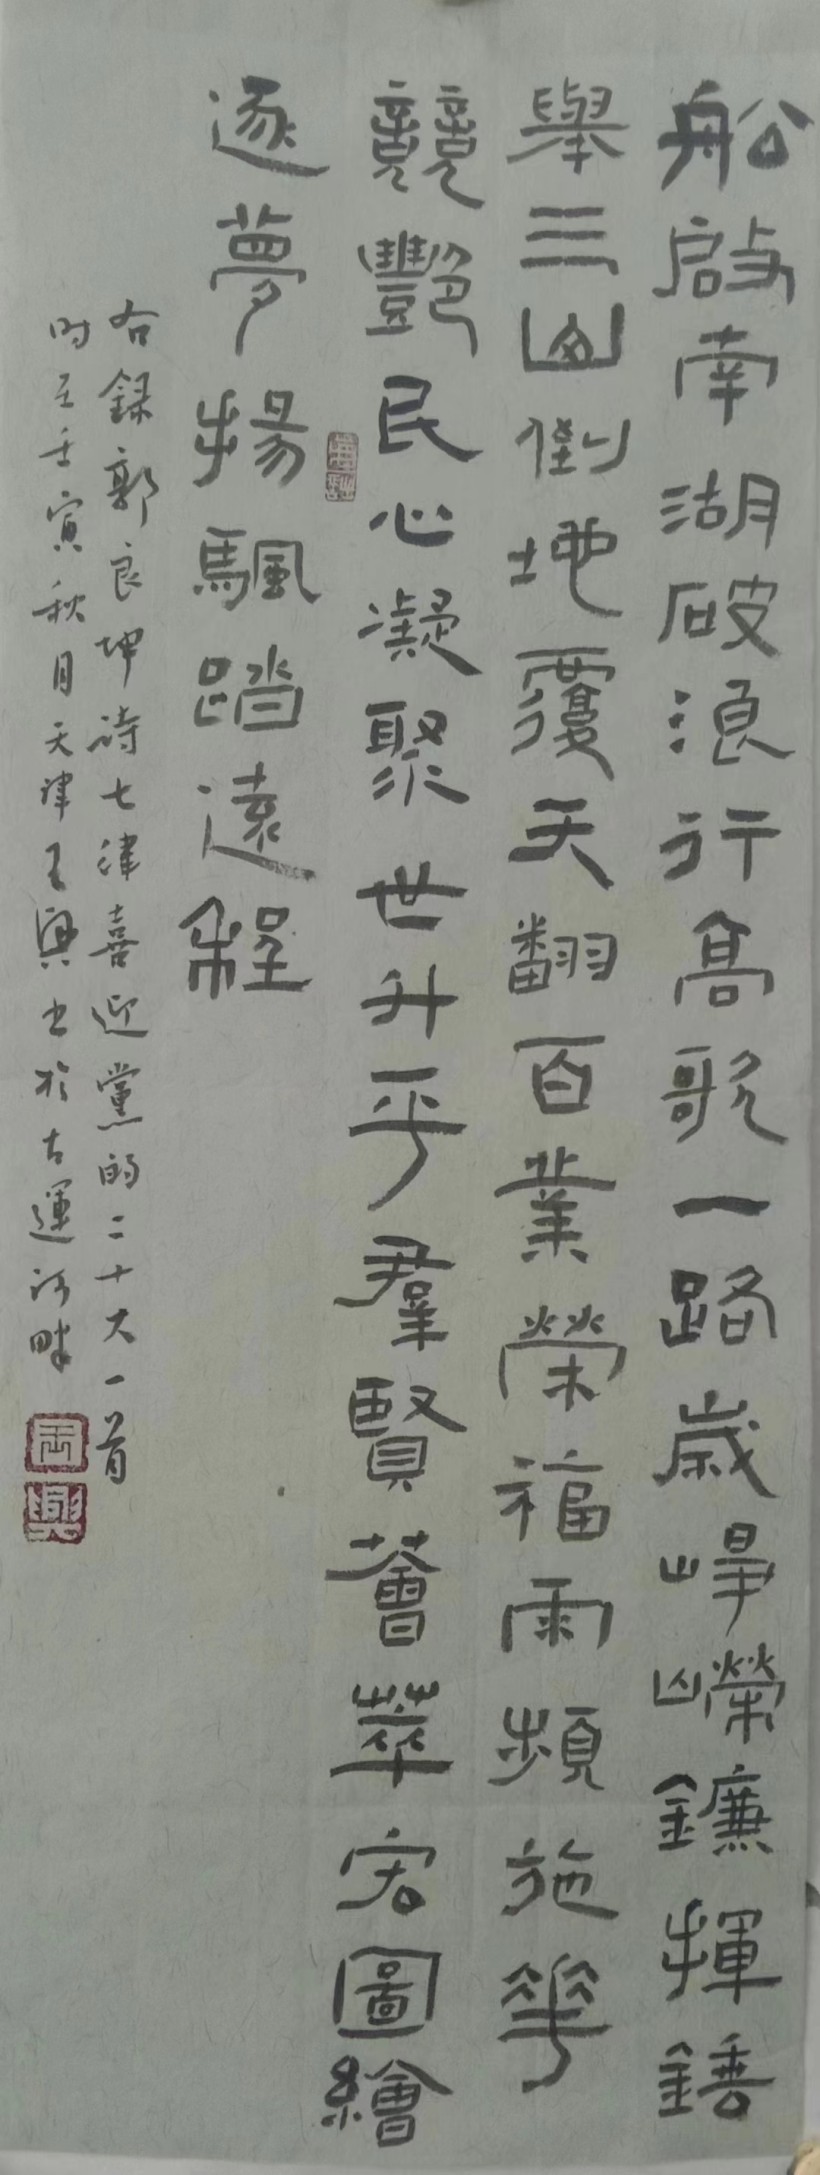 船啟南湖破浪行高歌一路歲崢嶸鐮揮錘
舉三山倒地覆天翻百業榮福雨頻施華
競艷民心凝聚世升平羣賢薈萃宏圖繪
逐夢揚颿踏遠程
右錄郭良坤詩七律喜迎黨的二十大一首
時在壬寅秋月天津王興書於古運河畔
王
興